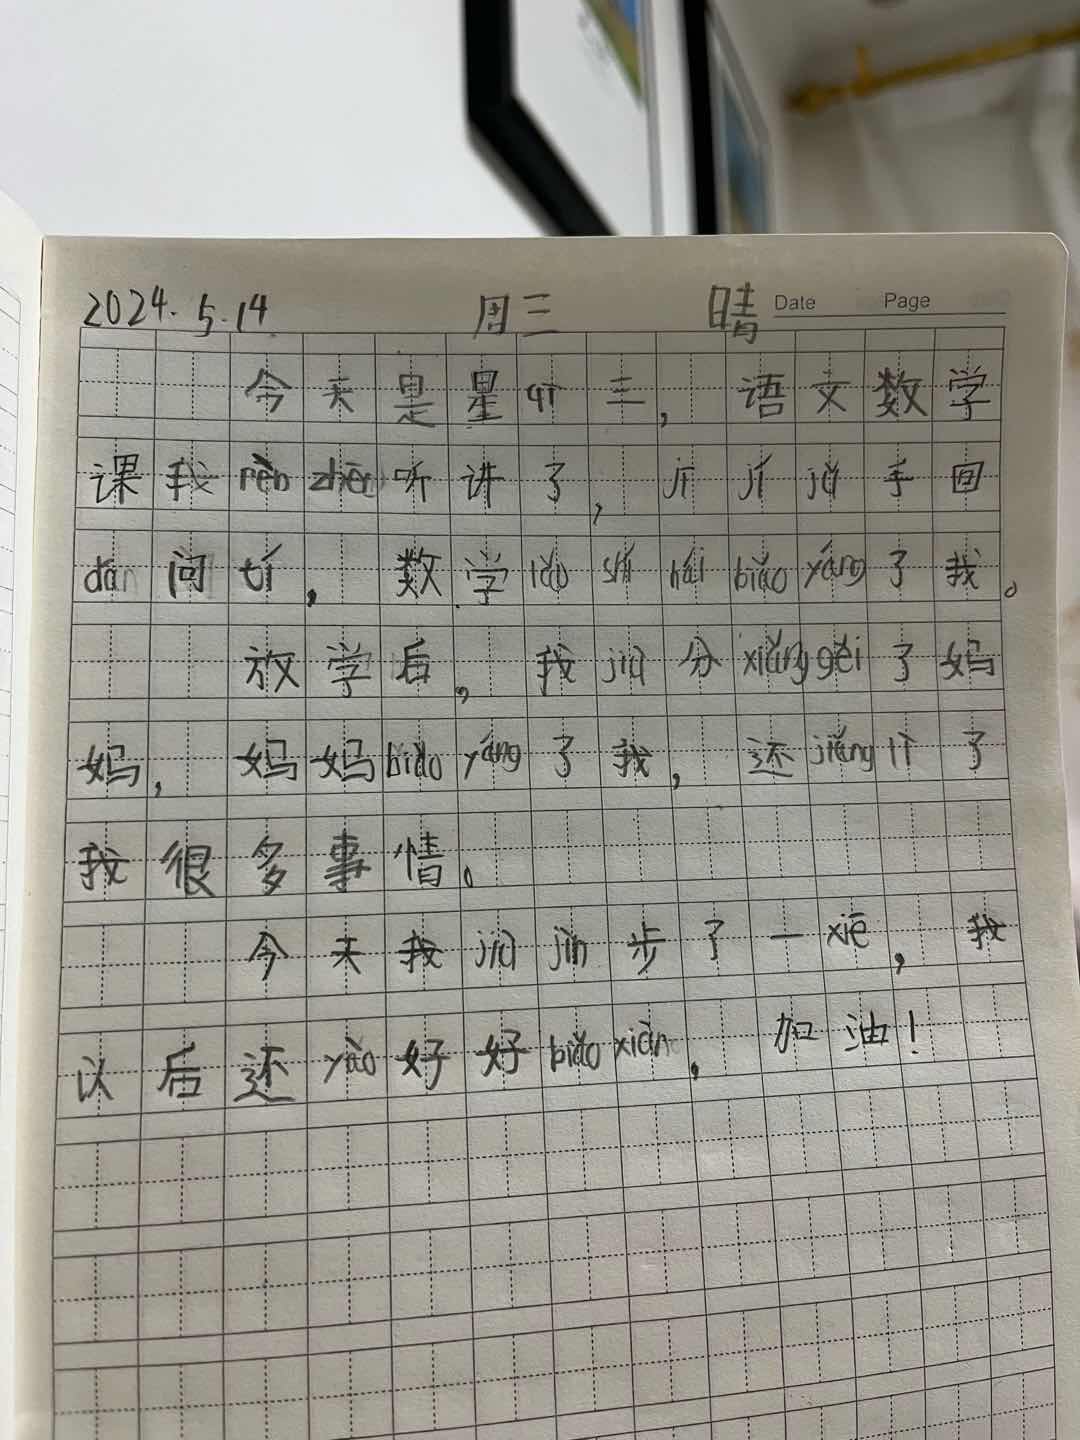 2024.5.14 周三 晴 Date Page
今天是星qī三，语文数学
课我rèn zhēn听讲了，jī jí jǔ手回
dán问tí，数学lǎo shī hái biǎo yáng了我。
放学后，我jiā分xiǎng gěi了妈
妈，妈妈biǎo yáng了我，还jiǎng lì了
我很多事情。
今天我jiā jìn步了一xiē，我
以后还yào好好biǎo xiàn，加油！